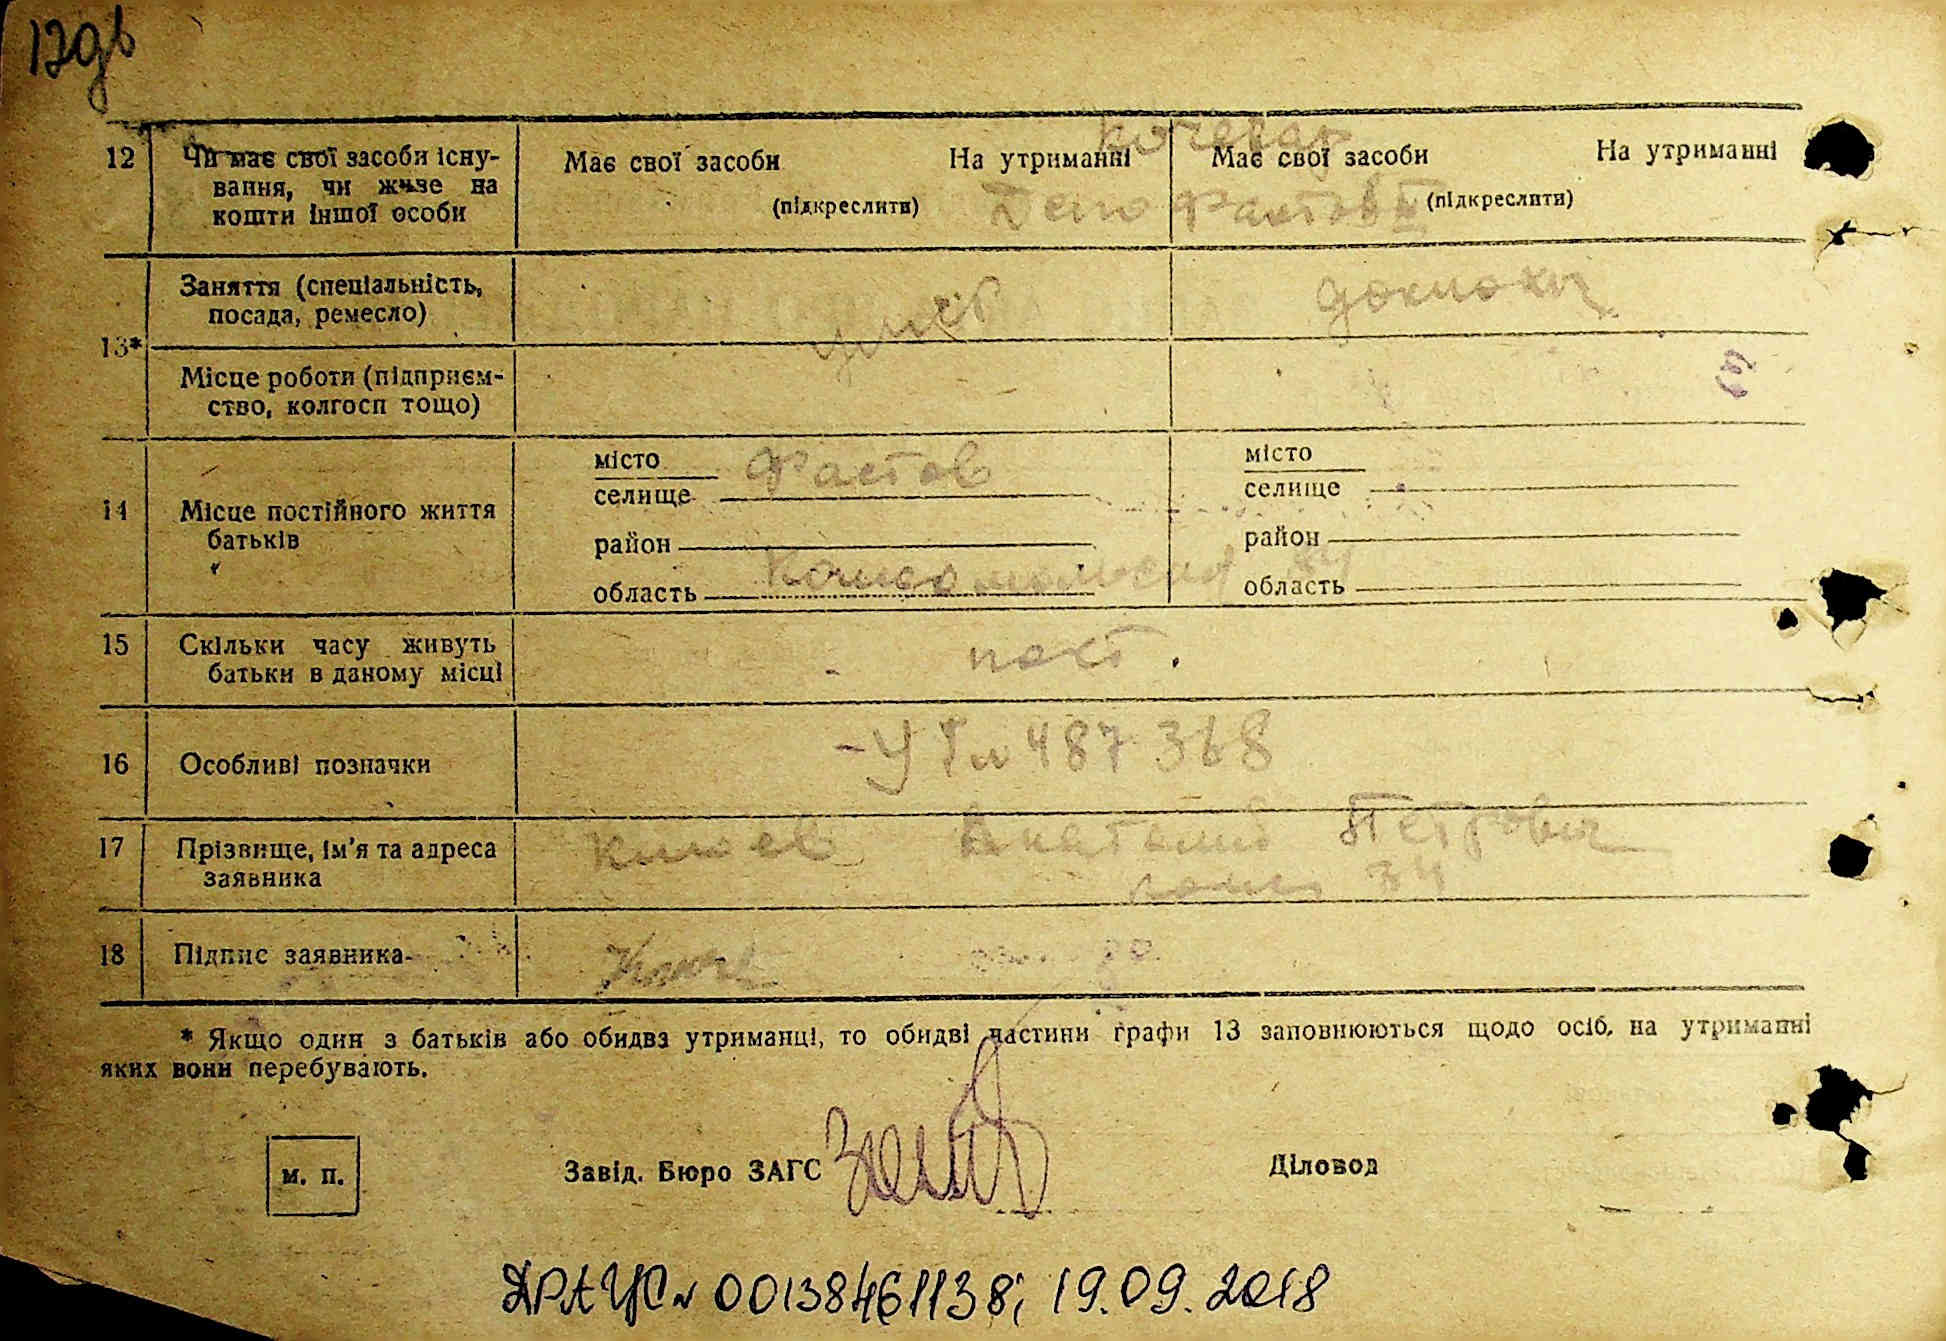 12
Чи має свої засоби існу-
вання, чи живе на
кошти іншої особи
Має свої засоби На утриманні
(підкреслити)
Має свої засоби На утриманні
(підкреслити)
кочегар
Депо Фастов II
13*
Заняття (спеціальність,
посада, ремесло)
домохоз
Місце роботи (підприєм-
ство, колгосп тощо)
14
Місце постійного життя
батьків
місто Фастов
селище
район
область
місто
селище
район
область
Комсомольская 34
15
Скільки часу живуть
батьки в даному місці
пост.
16
Особливі позначки
487 368
17
Прізвище, ім'я та адреса
заявника
Анатолий Петрович
34
18
Підпис заявника
* Якщо один з батьків або обидва утриманці, то обидві частини графи 13 заповнюються щодо осіб, на утриманні
яких вони перебувають.
м. п.
Завід. Бюро ЗАГС
Діловод
ДРАЦС № 00138461138; 19.09.2018